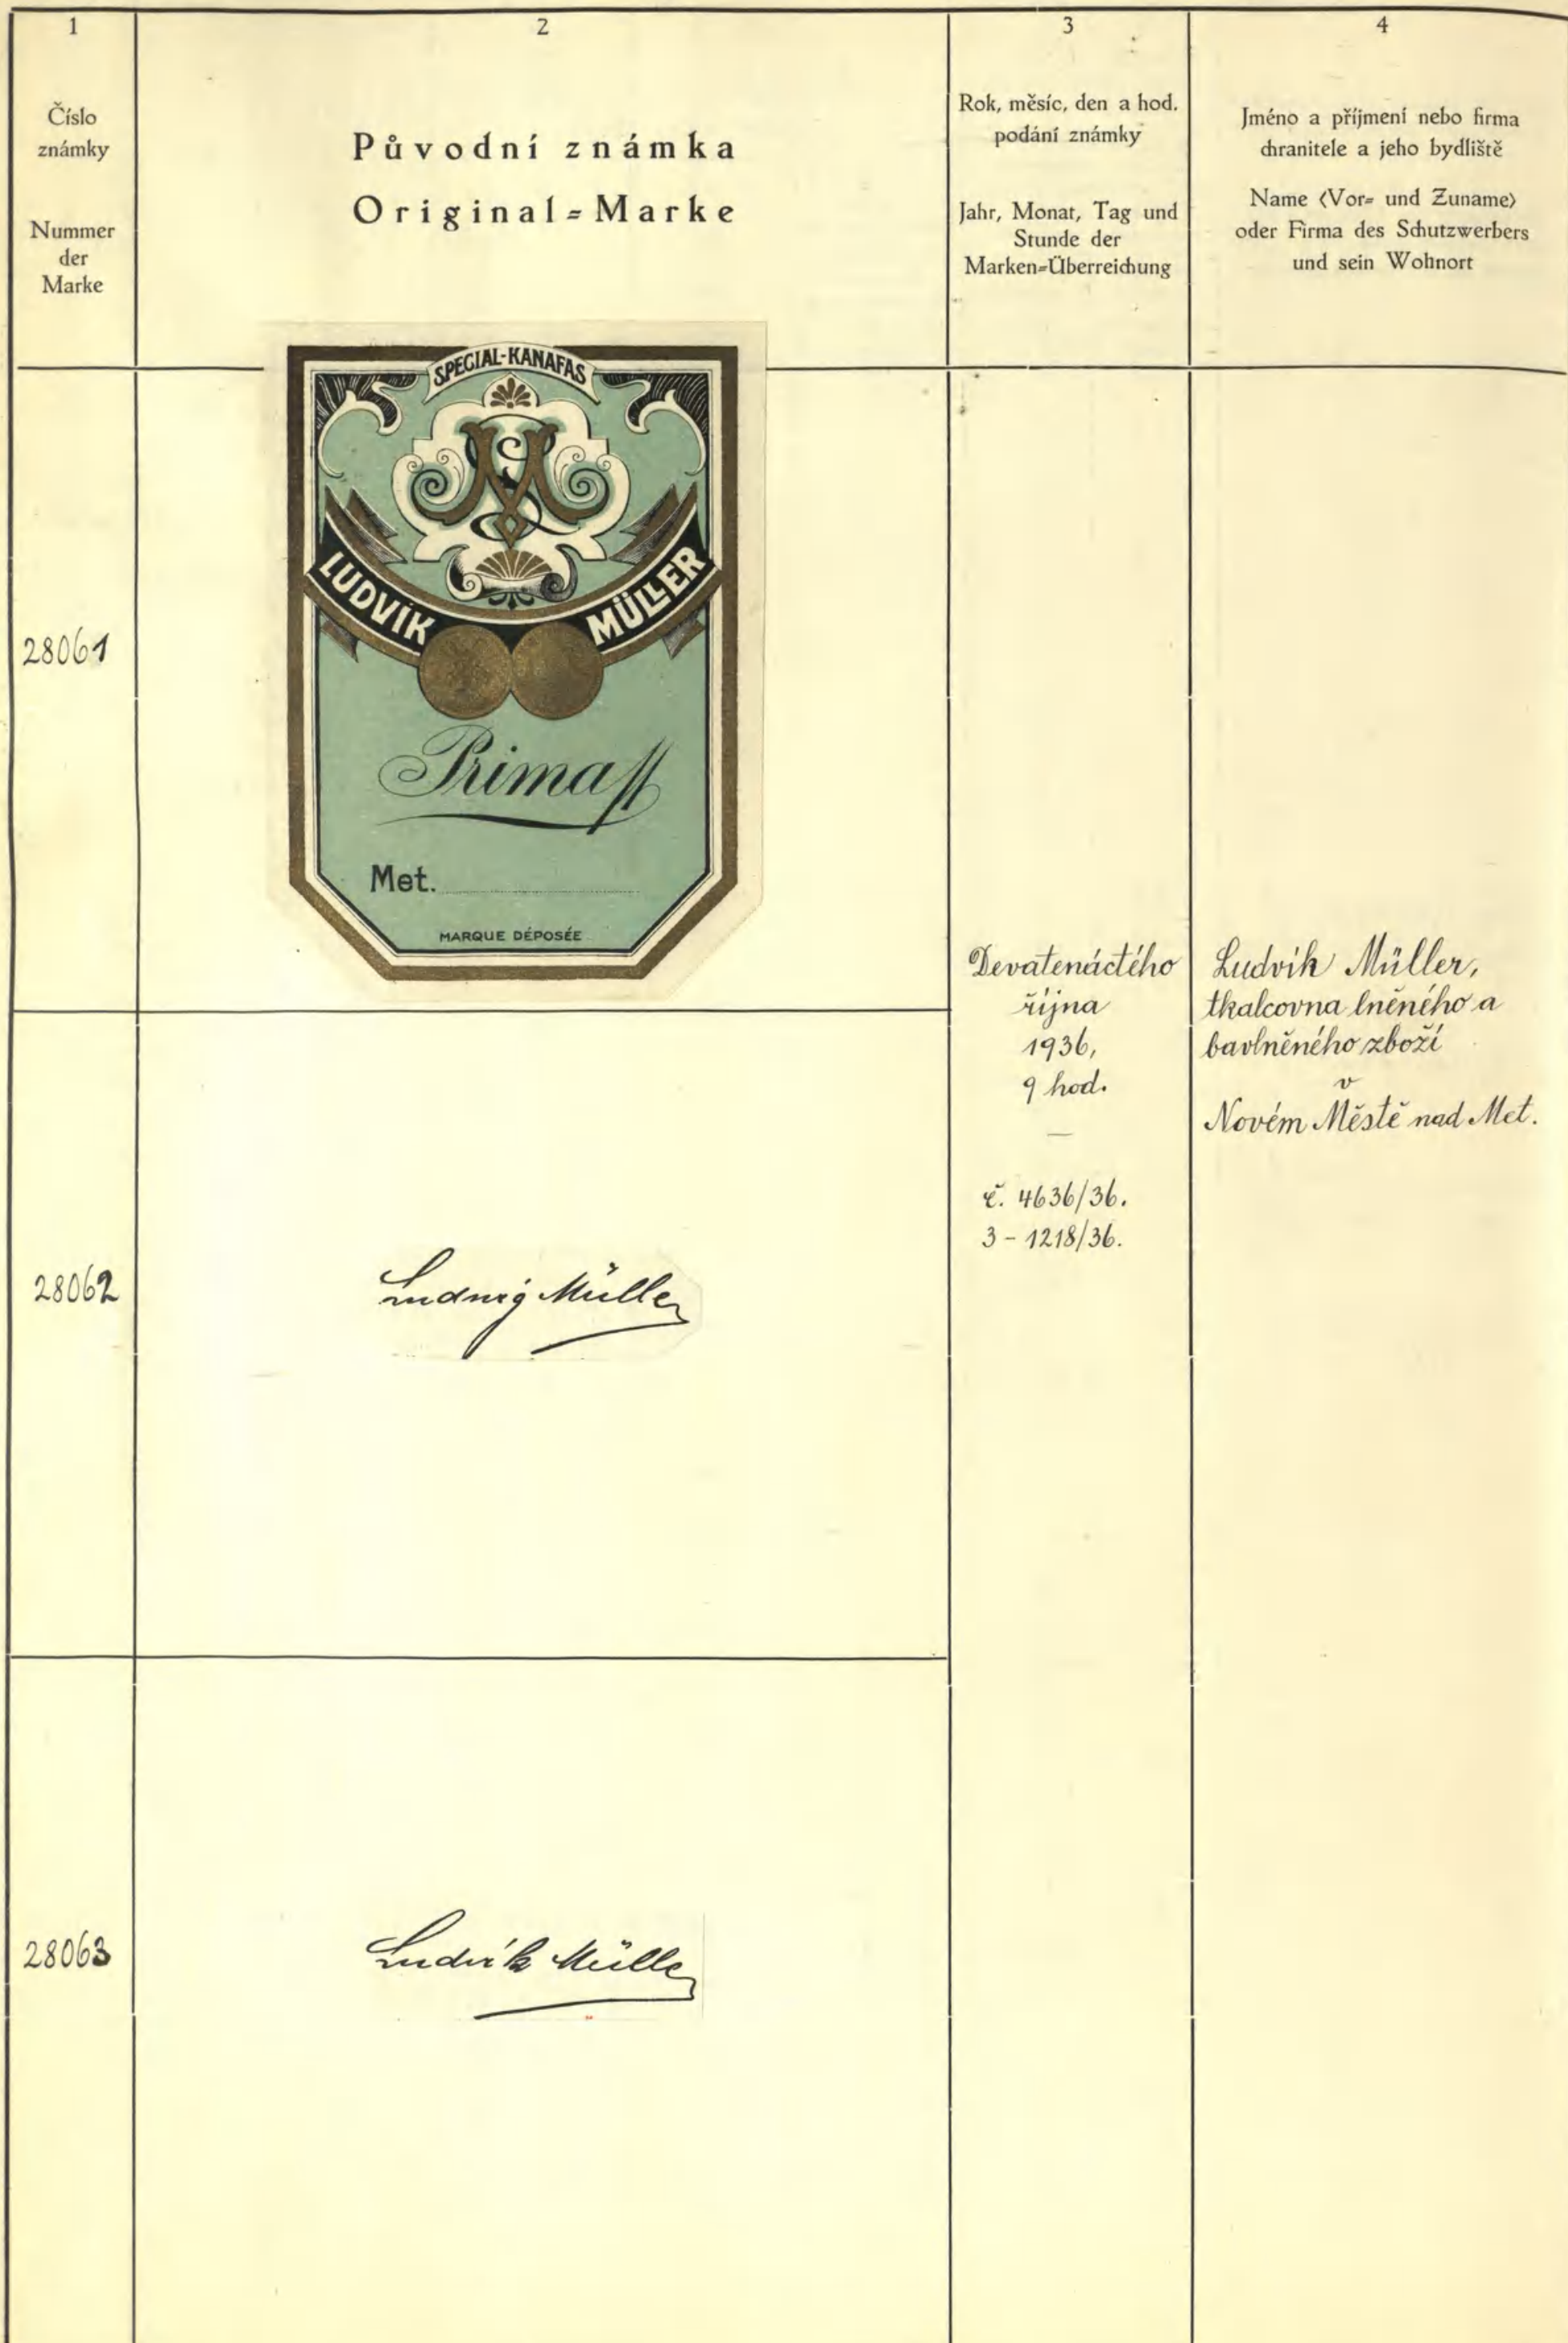 1
2
3
4
Číslo
známky
Nummer
der
Marke
Původní známka
Original-Marke
Rok, měsíc, den a hod.
podání známky
Jahr, Monat, Tag und
Stunde der
Marken-Überreichung
Jméno a příjmení nebo firma
chranitele a jeho bydliště
Name (Vor- und Zuname)
oder Firma des Schutzwerbers
und sein Wohnort
28061
SPECIAL-KANAFAS
LM
LUDVÍK MÜLLER
Prima
Met.
MARQUE DÉPOSÉE
Devatenáctého
října
1936,
9 hod.
—
č. 4636/36.
3 - 1218/36.
Ludvík Müller,
tkalcovna lněného a
bavlněného zboží
v
Novém Městě nad Met.
28062
Ludwig Müller
28063
Ludvík Müller